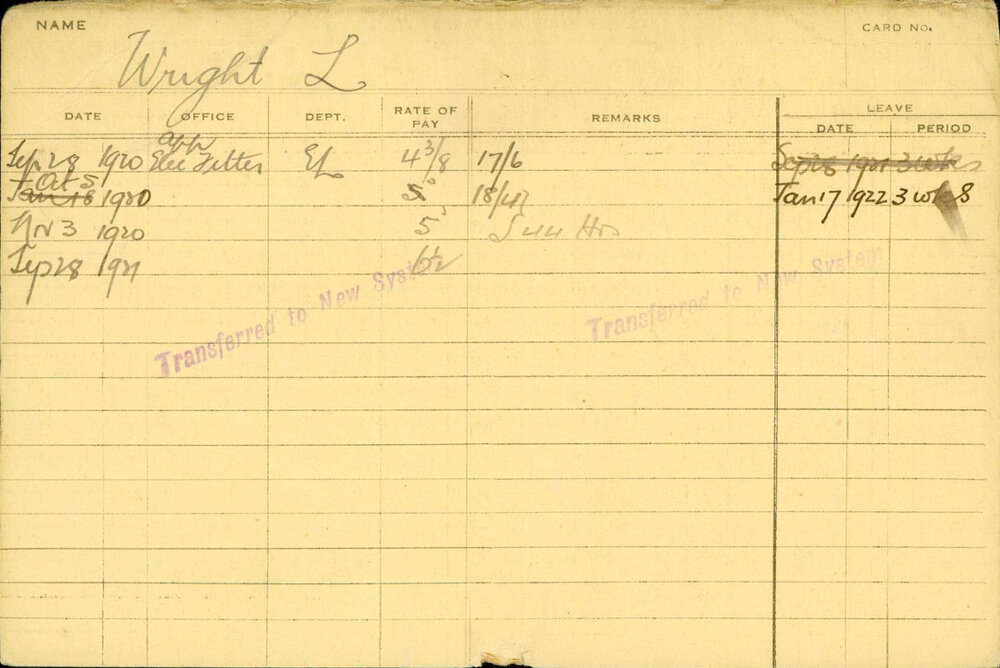 NAME CARD No.
Wright L
DATE OFFICE DEPT. RATE OF PAY REMARKS LEAVE
DATE PERIOD
app
Sep 28 1920 Elec Fitter EL 4 3/8 17/6 Sep 28 1921 3 wks
Oct 5
Jan 18 1920 5° 18/
Nov 3 1920 5° Hrs
Jan 17 1922 3 wks
Sep 28 1921
Transferred to New System
Transferred to New System